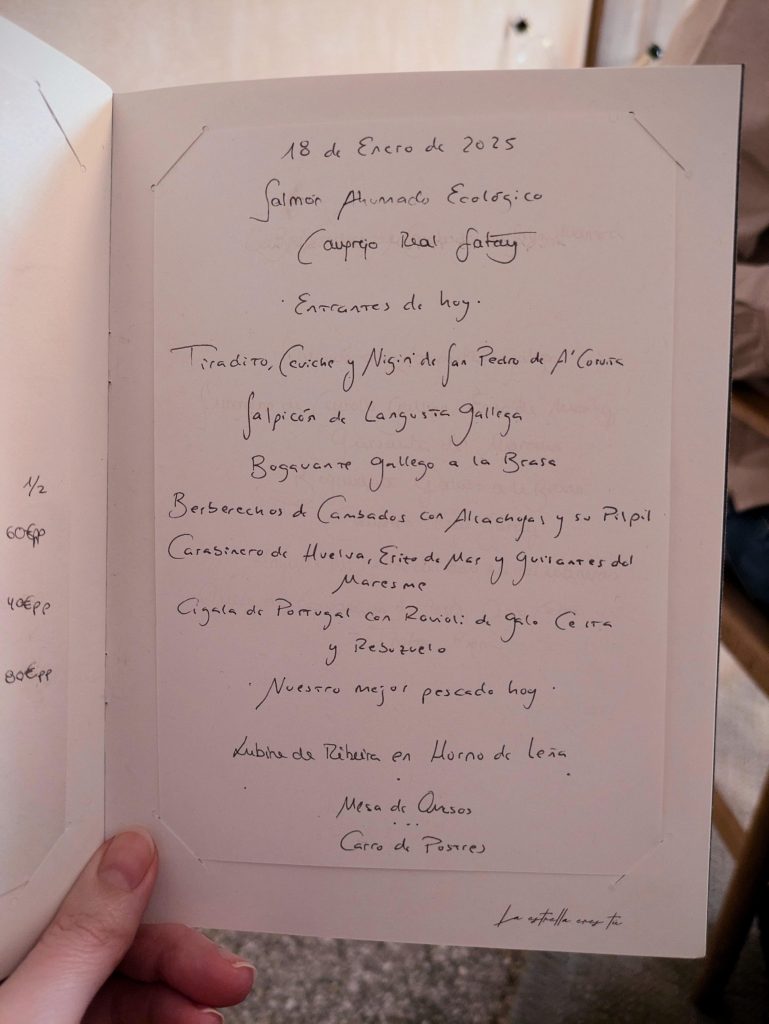 1/2
60€pp
40€pp
80€pp
18 de Enero de 2025
Salmón Ahumado Ecológico
Cangrejo Real Satay
· Entrantes de hoy ·
Tiradito, Ceviche y Nigiri de San Pedro de A'Coruña
Salpicón de Langosta Gallega
Bogavante gallego a la Brasa
Berberechos de Cambados con Alcachofas y su Pilpil
Carabinero de Huelva, Erizo de Mar y guisantes del
Maresme
Cigala de Portugal con Ravioli de galo Celta
y Rebozuelo
· Nuestro mejor pescado hoy ·
Lubina de Ribeira en Horno de Leña
Mesa de Quesos
...
Carro de Postres
La estrella eres tú